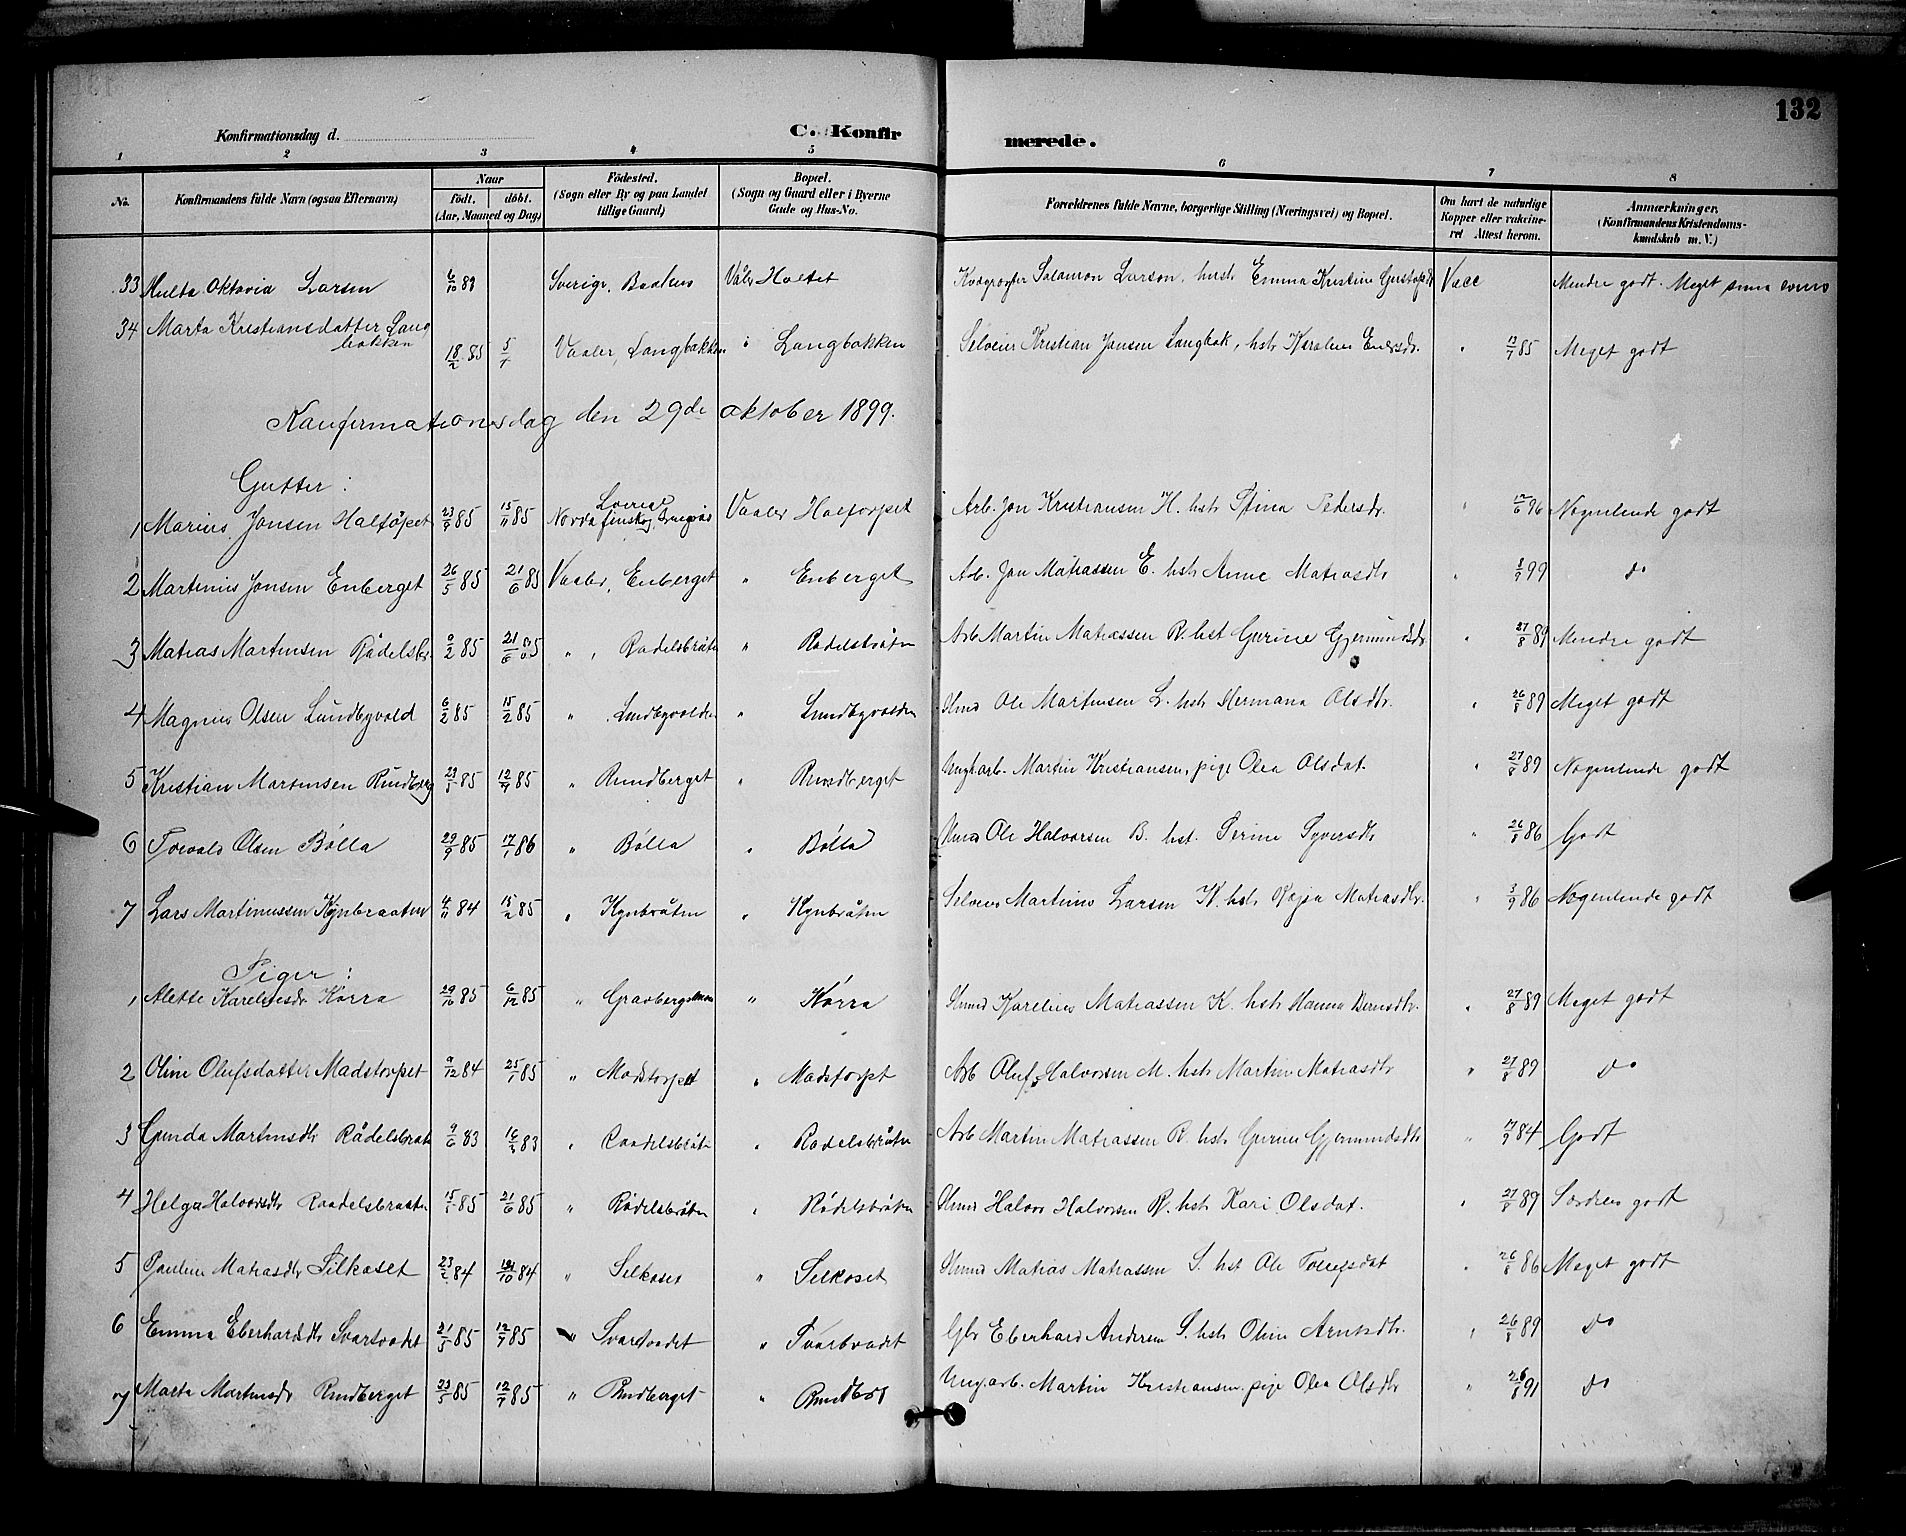 132
Konfirmationsdag d.
C. Konfirmerede.
1 2 3 4 5 6 7 8
No. Konfirmandens fulde Navn (ogsaa Efternavn) Naar födt, döbt. (Aar, Maaned og Dag) Födested. (Sogn eller By og paa Landet tillige Gaard) Bopæl. (Sogn og Gaard eller i Byerne Gade og Hus-No. Forældrenes fulde Navne, borgerlige Stilling (Næringsvei) og Bopæl. Om havt de naturlige Kopper eller vakcineret Attest herom. Anmærkninger. (Konfirmandens Kristendomskundskab m. V.)
33 Hulta Oktavia Larsen 6/10 Sverige Vaaler Haltet Salamon Larson, hustr Emma Kristine Vacc Mendre godt. Meget
34 Marta Kristiansdatter Langbakken 18/2 85 5/7 Vaaler, Langbakken Langbakken Selveier Kristian Jonsen Langbak, hstr Karoline 85 Meget godt
Konfirmationsdag den 29de oktober 1899.
Gutter:
1 Marius Jonsen 23/9 85 15/11 85 Vaaler Arb. Jon Kristiansen H. hstr Stina Pedersdr. 96 Nogenlunde godt
2 Martinius Jonsen Enberget 26/5 85 21/6 85 Vaaler, Enberget " Enberget Arb. Jon Matiassen E. hstr Anne Matiasdtr " 99 do
3 Matias Martinsen 85 " , Radelsbråten " Radelsbråten Arb Martin Matiassen R. hst Gurine Gjermundsdr " 27/8 89 Mendre godt
4 Magnus Olsen Lundbyvold 6/2 85 15/2 85 " Lundbyvolden " Lundbyvolden Ole Martinsen L. hstr Hermana Olsdtr. " 26/8 89 Meget godt
5 Kristian Martinsen Rundberg 23/5 85 12/7 85 " Rundberget " Rundberget Ungk.arb. Martin Kristiansen, pige Olea Olsdat. " 27/8 89 Nogenlunde godt
6 Torvald Olsen Bölla 29/9 85 17/1 86 " Bölla " Bölla Ole Halvorsen B. hst. Syversdtr " 26/8 86 Godt
7 Lars Martinussen Kynbraaten 4/11 84 15/2 85 " Kynbråten " Kynbråten Selveier Martinus Larsen K. hstr Kaja Matiasdtr. " 3/9 86 Nogenlunde godt
Piger:
1 Alette Karelinsdr Körra 29/10 85 6/12 85 " Gravbergsmoen " Körra Karelius Matiassen K. hstr Hanna Berntsdtr. " 27/8 89 Meget godt
2 Oline Olufsdatter Madstorpet 9/12 84 25/1 85 " Madstorpet " Madstorpet Arb Oluf Halvorsen M. hstr Martine Matiasdtr " 27/8 89 do
3 Gunda Martinsdtr Rådelsbrat 9/6 83 83 " Raadelsbråten " Radelsbråten Arb Martin Matiassen R. hstr Gurine Gjermundsdtr " 84 Godt
4 Helga Halvorsdtr Raadelsbraaten 15/5 85 21/6 85 " Rådelsbråten " Rådelsbråten Halvor Halvorsen R. hstr Kari Olsdat. " 27/8 89 Særdeles godt
5 Pauline Matiasdtr Silkoset 23/2 84 84 " Silkoset " Silkoset Matias Matiassen S. hst Ole " 26/8 86 Meget godt
6 Emma Eberhardsdtr Svartvadet 21/5 85 12/7 85 " Svartvadet " Svartvadet Gbr Eberhard Andersen S. hstr Oline Arntsdtr. " 26/8 89 do
7 Marta Martinsdr Rundberget 23/5 85 12/7 85 " Rundberget " Ung.arb. Martin Kristiansen, pige Olea Olsdtr " 26/8 91 do